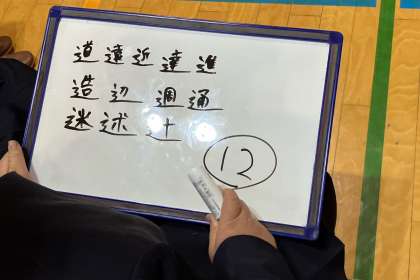 道 遠 近 達 進
造 辺 週 通
迷 述 辻
12